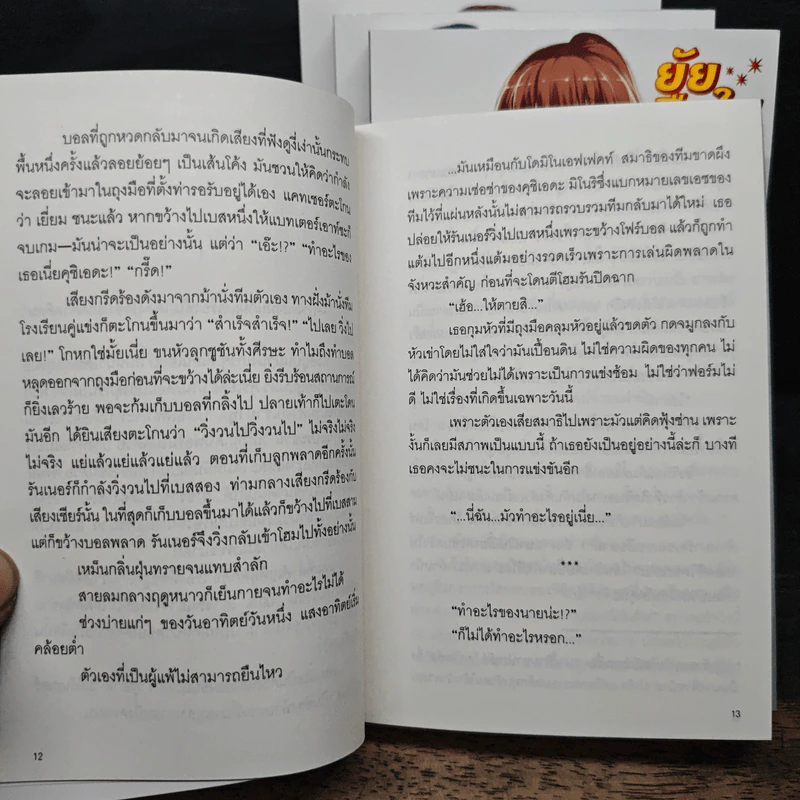 ยัย
บอลที่ถูกหวดกลับมาจนเกิดเสียงที่ฟังดูงี่เง่านั้นกระทบ
พื้นหนึ่งครั้งแล้วลอยย้อยๆ เป็นเส้นโค้ง มันชวนให้คิดว่ากำลัง
จะลอยเข้ามาในถุงมือที่ตั้งท่ารอรับอยู่ได้เอง แคทเชอร์ตะโกน
ว่า เยี่ยม ชนะแล้ว หากขว้างไปเบสหนึ่งให้แบทเตอร์เอาท์ซะก็
จบเกม—มันน่าจะเป็นอย่างนั้น แต่ว่า “เอ๊ะ!?” “ทำอะไรของ
เธอเนี่ยคุชิเอดะ!” “กรี๊ด!”
เสียงกรีดร้องดังมาจากม้านั่งทีมตัวเอง ทางฝั่งม้านั่งทีม
โรงเรียนคู่แข่งก็ตะโกนขึ้นมาว่า “สำเร็จสำเร็จ!” “ไปเลย วิ่งไป
เลย!” โกหกใช่มั้ยเนี่ย ขนหัวลุกซูชันทั้งศีรษะ ทำไมถึงทำบอล
หลุดออกจากถุงมือก่อนที่จะขว้างได้ล่ะเนี่ย ยิ่งรีบร้อนสถานการณ์
ก็ยิ่งเลวร้าย พอจะก้มเก็บบอลที่กลิ้งไป ปลายเท้าก็ไปเตะโดน
มันอีก ได้ยินเสียงตะโกนว่า “วิ่งวนไปวิ่งวนไป” ไม่จริงไม่จริง
ไม่จริง แย่แล้วแย่แล้วแย่แล้ว ตอนที่เก็บลูกพลาดอีกครั้งนั้น
รันเนอร์ก็กำลังวิ่งวนไปที่เบสสอง ท่ามกลางเสียงกรีดร้องกับ
เสียงเชียร์นั้น ในที่สุดก็เก็บบอลขึ้นมาได้แล้วก็ขว้างไปที่เบสสาม
แต่ก็ขว้างบอลพลาด รันเนอร์จึงวิ่งกลับเข้าโฮมไปทั้งอย่างนั้น
เหม็นกลิ่นฝุ่นทรายจนแทบสำลัก
สายลมกลางฤดูหนาวก็เย็นกายจนทำอะไรไม่ได้
ช่วงบ่ายแก่ๆ ของวันอาทิตย์วันหนึ่ง แสงอาทิตย์เริ่ม
คล้อยต่ำ
ตัวเองที่เป็นผู้แพ้ไม่สามารถยืนไหว
12
...มันเหมือนกับโดมิโนเอฟเฟดท์ สมาธิของทีมขาดผึง
เพราะความเซ่อซ่าของคุชิเอดะ มิโนริซึ่งแบกหมายเลขเอซของ
ทีมไว้ที่แผ่นหลังนั้นไม่สามารถรวบรวมทีมกลับมาได้ใหม่ เธอ
ปล่อยให้รันเนอร์วิ่งไปเบสหนึ่งเพราะขว้างโฟร์บอล แล้วก็ถูกทำ
แต้มไปอีกหนึ่งแต้มอย่างรวดเร็วเพราะการเล่นผิดพลาดใน
จังหวะสำคัญ ก่อนที่จะโดนตีโฮมรันปิดฉาก
“เฮ้อ...ให้ตายสิ...”
เธอกุมหัวที่มีถุงมือคลุมหัวอยู่แล้วขดตัว กดจมูกลงกับ
หัวเข่าโดยไม่ใส่ใจว่ามันเปื้อนดิน ไม่ใช่ความผิดของทุกคน ไม่
ได้คิดว่ามันช่วยไม่ได้เพราะเป็นการแข่งซ้อม ไม่ใช่ว่าฟอร์มไม่
ดี ไม่ใช่เรื่องที่เกิดขึ้นเฉพาะวันนี้
เพราะตัวเองเสียสมาธิไปเพราะมัวแต่คิดฟุ้งซ่าน เพราะ
งั้นก็เลยมีสภาพเป็นแบบนี้ ถ้าเธอยังเป็นอยู่อย่างนี้ล่ะก็ บางที
เธอคงจะไม่ชนะในการแข่งขันอีก
“...นี่ฉัน...มัวทำอะไรอยู่เนี่ย...”
***
“ทำอะไรของนายน่ะ!?”
“ก็ไม่ได้ทำอะไรหรอก...”
13